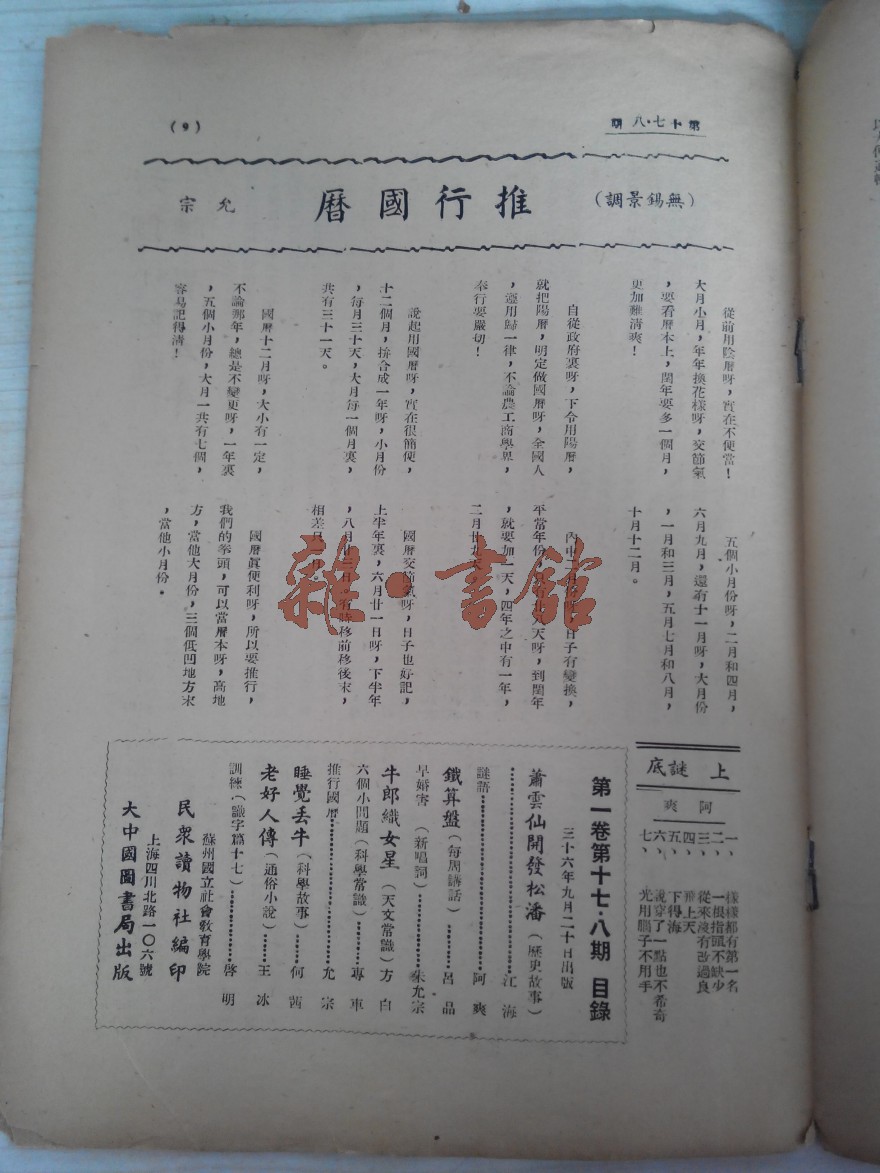 第十七·八期
(9)
(無錫景調)
推行國曆
允宗
從前用陰曆呀，實在不便當！
大月小月，年年換花樣呀，交節氣
，要看曆本上，閏年要多一個月，
更加難清爽！
自從政府裏呀，下令用陽曆，
就把陽曆，明定做國曆呀，全國人
，遵用歸一律，不論農工商學界，
奉行要嚴切！
說起用國曆呀，實在很簡便，
十二個月，拚合成一年呀，小月份
，每月三十天，大月每一個月裏，
共有三十一天。
國曆十二月呀，大小有一定，
不論那年，總是不變更呀，一年裏
，五個小月份，大月一共有七個，
容易記得清！
五個小月份呀，二月和四月，
六月九月，還有十一月呀，大月份
，一月和三月，五月七月和八月，
十月十二月。
內中二月份呀，日子有變換，
平常年份，只有廿八天呀，到閏年
，就要加一天，四年之中有一年，
二月廿九天
國曆交節氣呀，日子也好記，
上半年裏，六月廿一日呀，下半年
，八月廿三日，有時移前移後來，
相差只一日。
國曆眞便利呀，所以要推行，
我們的拳頭，可以當曆本呀，高地
方，當他大月份，三個低凹地方末
，當他小月份。
雜·書館
上謎底
阿爽
一、樣樣都有第一名
二、一根指頭不缺少
三、從來沒有改過良
四、飛上天
五、下得海
六、說穿了一點也不希奇
七、光用腦子不用手
第一卷第十七·八期 目錄
三十六年九月二十日出版
蕭雲仙開發松潘（歷史故事）
……江海
謎語……阿爽
鐵算盤（每周講話）……呂品
早婚害（新唱詞）……朱允宗
牛郎織女星（天文常識）方白
六個小問題（科學常識）……專車
推行國曆……允宗
睡覺丢牛（科學故事）……何茜
老好人傳（通俗小說）……王冰
訓練（識字篇十七）……啓明
蘇州國立社會敎育學院
民衆讀物社編印
上海四川北路一〇六號
大中國圖書局出版